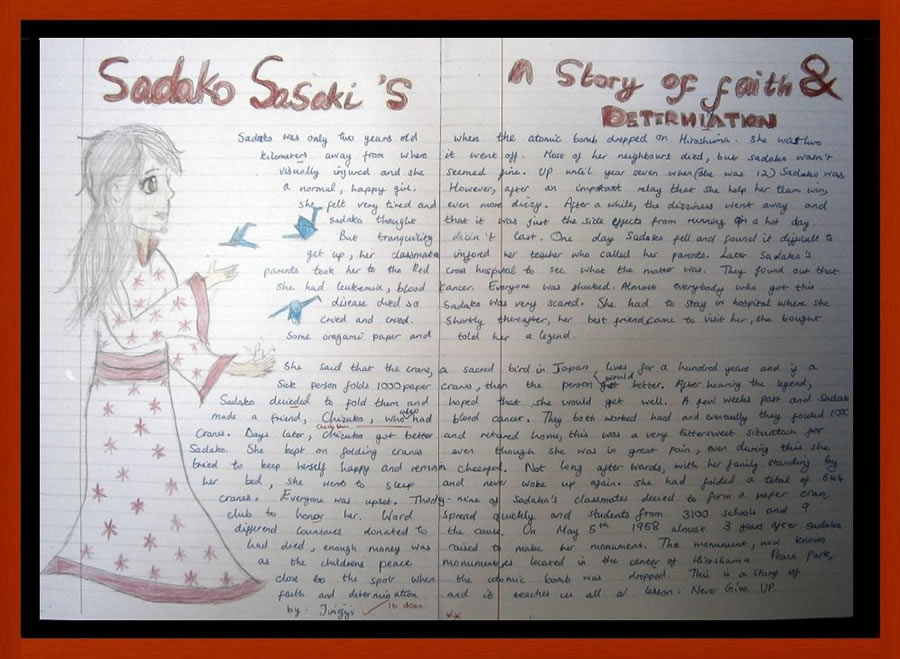 Sadako Sasaki's A Story of faith &
DETERMIATION
Sadako was only two years old when the atomic bomb dropped on Hiroshima. She was two
kilometers away from where it went off. Most of her neighbours died, but sadako wasn't
visually injured and she seemed fine. UP until year seven when (she was 12) Sadako was
a normal, happy girl. However, after an important relay that she help her team win,
she felt very tired and even more dizzy. After a while, the dizziness went away and
sadako thought that it was just the side effects from running on a hot day.
But tranquility didn't last. One day Sadako fell and found it difficult to
get up, her classmate informed her teacher who called her parents. Later Sadako's
parents took her to the Red cross hospital to see what the matter was. They found out that
she had leukemia, blood cancer. Everyone was shocked. Almost everybody who got this
disease died so Sadako was very scared. She had to stay in hospital where she
cried and cried. Shortly thereafter, her best friend came to visit her, she bought
Some oragami paper and told her a legend.
She said that the crane, a sacred bird in Japan lives for a hundred years and if a
Sick person folds 1000 paper cranes, then the person would get better. After hearing the legend,
Sadako decieded to fold them and hoped that she would get well. A few weeks past and Sadako
made a friend, Chizuko, who also had blood cancer. They both worked hard and eventually they folded 1000
Cranes. Days later, Chizuko got better and retured home, this was a very bittersweet situation for
Sadako. She kept on folding cranes even though she was in great pain, even during this she
tried to keep herself happy and remain cheerful. Not long after wards, with her family standing by
her bed, she went to sleep and never woke up again. she had folded a total of 644
cranes. Everyone was upset. Thirty-nine of Sadako's classmates decied to form a paper crane
club to honor her. Word spread quickly and students from 3100 schools and 9
different countries donated to the cause. On May 5th 1958 almost 3 years after Sadako
had died, enough money was raised to make her monument. The monument, now known
as the childrens peace monument is located in the center of Hiroshima Peace Park,
close to the spot where the atomic bomb was dropped. This is a story of
faith and determination and it teaches us all a lesson: Never Give UP.
by: Jingyi It does.